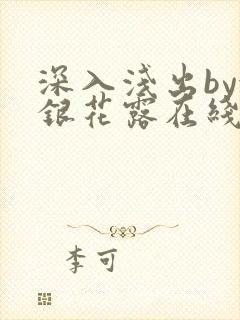 深入浅出by
銀花露在綫
李可